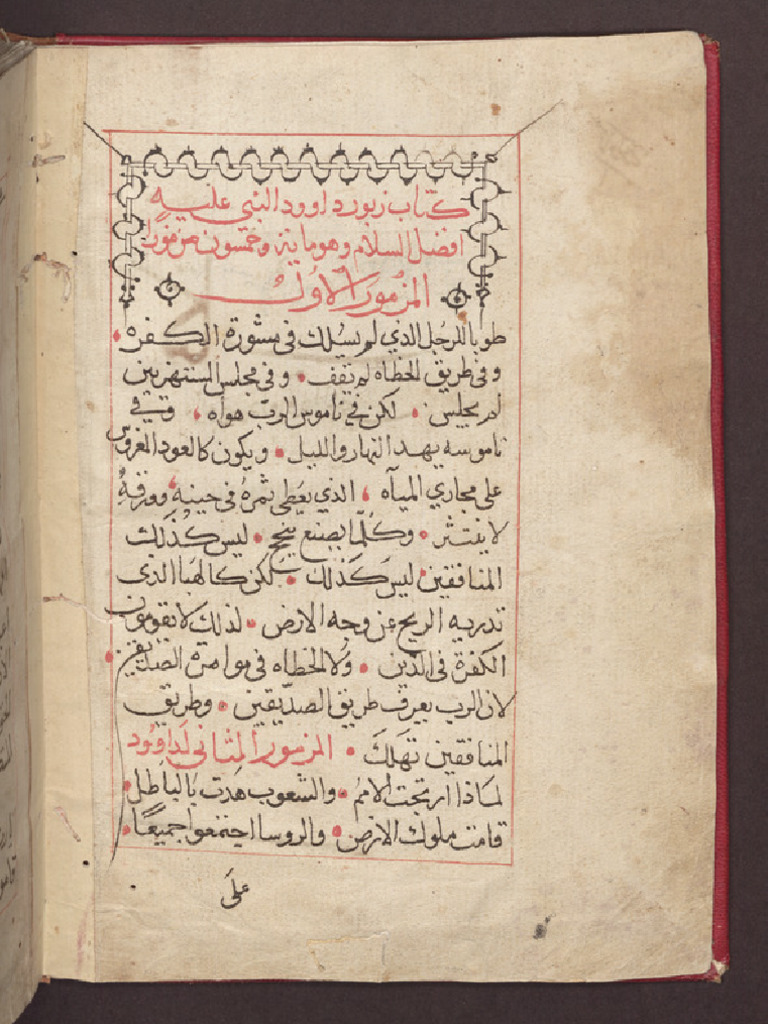 كتاب زبور داوود النبي عليه
افضل السلام وهو ماية وخمسون مزمورا
المزمور الاول
طوبا للرجل الدي لم يسلك في مشورة الكفره
وفي طريق الخطاه لم يقف وفي مجلس المستهزيين
لم يجلس لكن في ناموس الرب هواه وفي
ناموسه يهد النهار والليل ويكون كالعود المغروس
على مجاري المياه الذي يعطى ثمره في حينه وورقه
لا ينتثر وكلما يصنع ينجح ليس كذلك
المنافقين ليس كذلك لكن كالهبا الذى
تدريه الريح عن وجه الارض لذلك لا يقومون
الكفرة في الدين ولا الخطاه في موامرة الصديقين
لان الرب يعرف طريق الصديقين وطريق
المنافقين تهلك المزمور الثانى لداوود
لماذا ارتجت الامم والشعوب هدت بالباطل
قامت ملوك الارض والروسا اجتمعوا جميعا
على